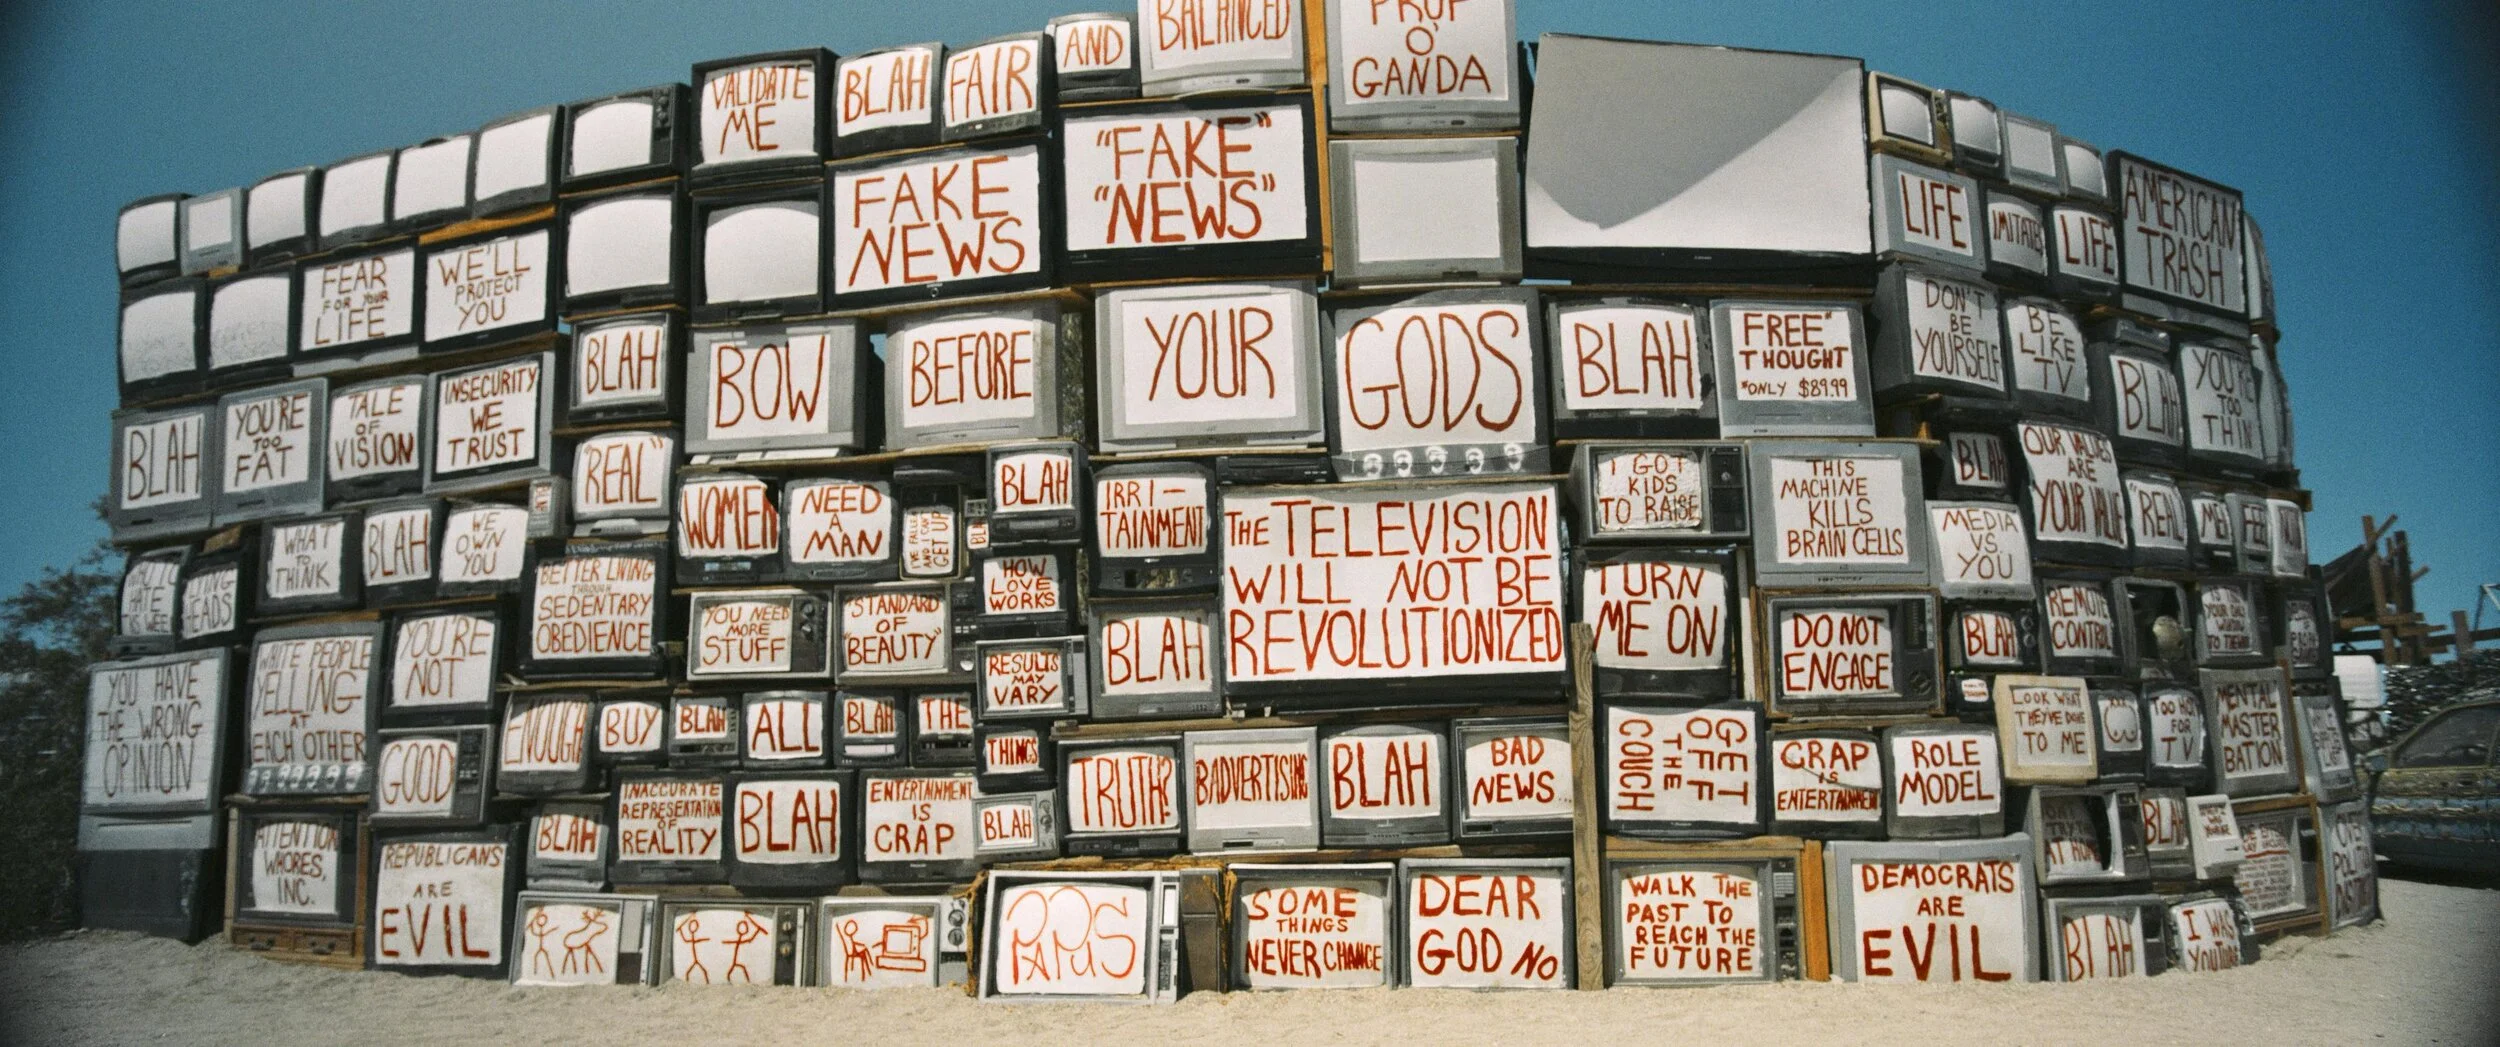 BALANCED
PRUF
O'
GANDA
VALIDATE
ME
BLAH
FAIR
AND
FAKE
NEWS
"FAKE"
"NEWS"
LIFE
IMITATES
LIFE
AMERICAN
TRASH
FEAR
FOR YOUR
LIFE
WE'LL
PROTECT
YOU
BLAH
BOW
BEFORE
YOUR
GODS
BLAH
FREE*
THOUGHT
*ONLY $89.99
DON'T
BE
YOURSELF
BE
LIKE
TV
BLAH
YOU'RE
TOO
THIN
BLAH
YOU'RE
TOO
FAT
TALE
OF
VISION
INSECURITY
WE
TRUST
"REAL"
WOMEN
NEED
A
MAN
I'VE FALLEN
AND I CAN'T
GET UP
BLAH
IRRI-
TAINMENT
THE TELEVISION
WILL NOT BE
REVOLUTIONIZED
I GOT
KIDS
TO RAISE
THIS
MACHINE
KILLS
BRAIN CELLS
BLAH
OUR VALUES
ARE
YOUR VALUE
"REAL"
MEN
WHAT
TO
THINK
BLAH
WE
OWN
YOU
BETTER LIVING
THROUGH
SEDENTARY
OBEDIENCE
YOU NEED
MORE
STUFF
"STANDARD
OF
BEAUTY"
HOW
LOVE
WORKS
BLAH
TURN
ME ON
DO NOT
ENGAGE
MEDIA
VS.
YOU
BLAH
REMOTE
CONTROL
HEADS
YOU HAVE
THE WRONG
OPINION
WHITE PEOPLE
YELLING
AT
EACH OTHER
YOU'RE
NOT
GOOD
ENOUGH
BUY
BLAH
ALL
BLAH
THE
THINGS
RESULTS
MAY
VARY
TRUTH?
BADVERTISING
BLAH
BAD
NEWS...
GET
OFF
THE
COUCH
CRAP
IS
ENTERTAINMENT
ROLE
MODEL
LOOK WHAT
THEY'VE DONE
TO ME
TOO HOT
FOR
TV
MENTAL
MASTER
BATION
ATTENTION
WHORES,
INC.
REPUBLICANS
ARE
EVIL
BLAH
INACCURATE
REPRESENTATION
OF
REALITY
BLAH
ENTERTAINMENT
IS
CRAP
BLAH
SOME
THINGS
NEVER CHANGE
DEAR
GOD NO
WALK THE
PAST TO
REACH THE
FUTURE
DEMOCRATS
ARE
EVIL
BLAH
BLAH
I WAS